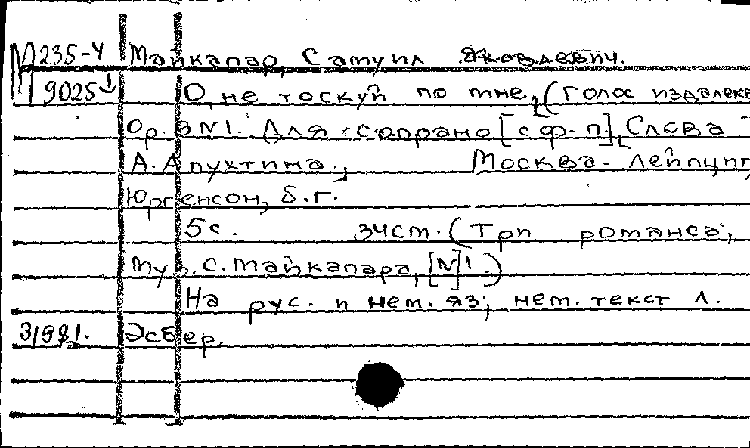 М235-4 Майкапар, Самуил Яковлевич.
М9025 О, не тоскуй по мне. (Голос издалека
Op. 3 №1. Для сопрано [с ф-п]. Слова
А. Апухтина., Москва - Лейпциг,
Юргенсон, б.г.
5с. 34см. (Три романса,
муз. С. Майкапара, [№]1.)
На рус. и нем. яз; нем. текст Л.
31981. Эсбер.